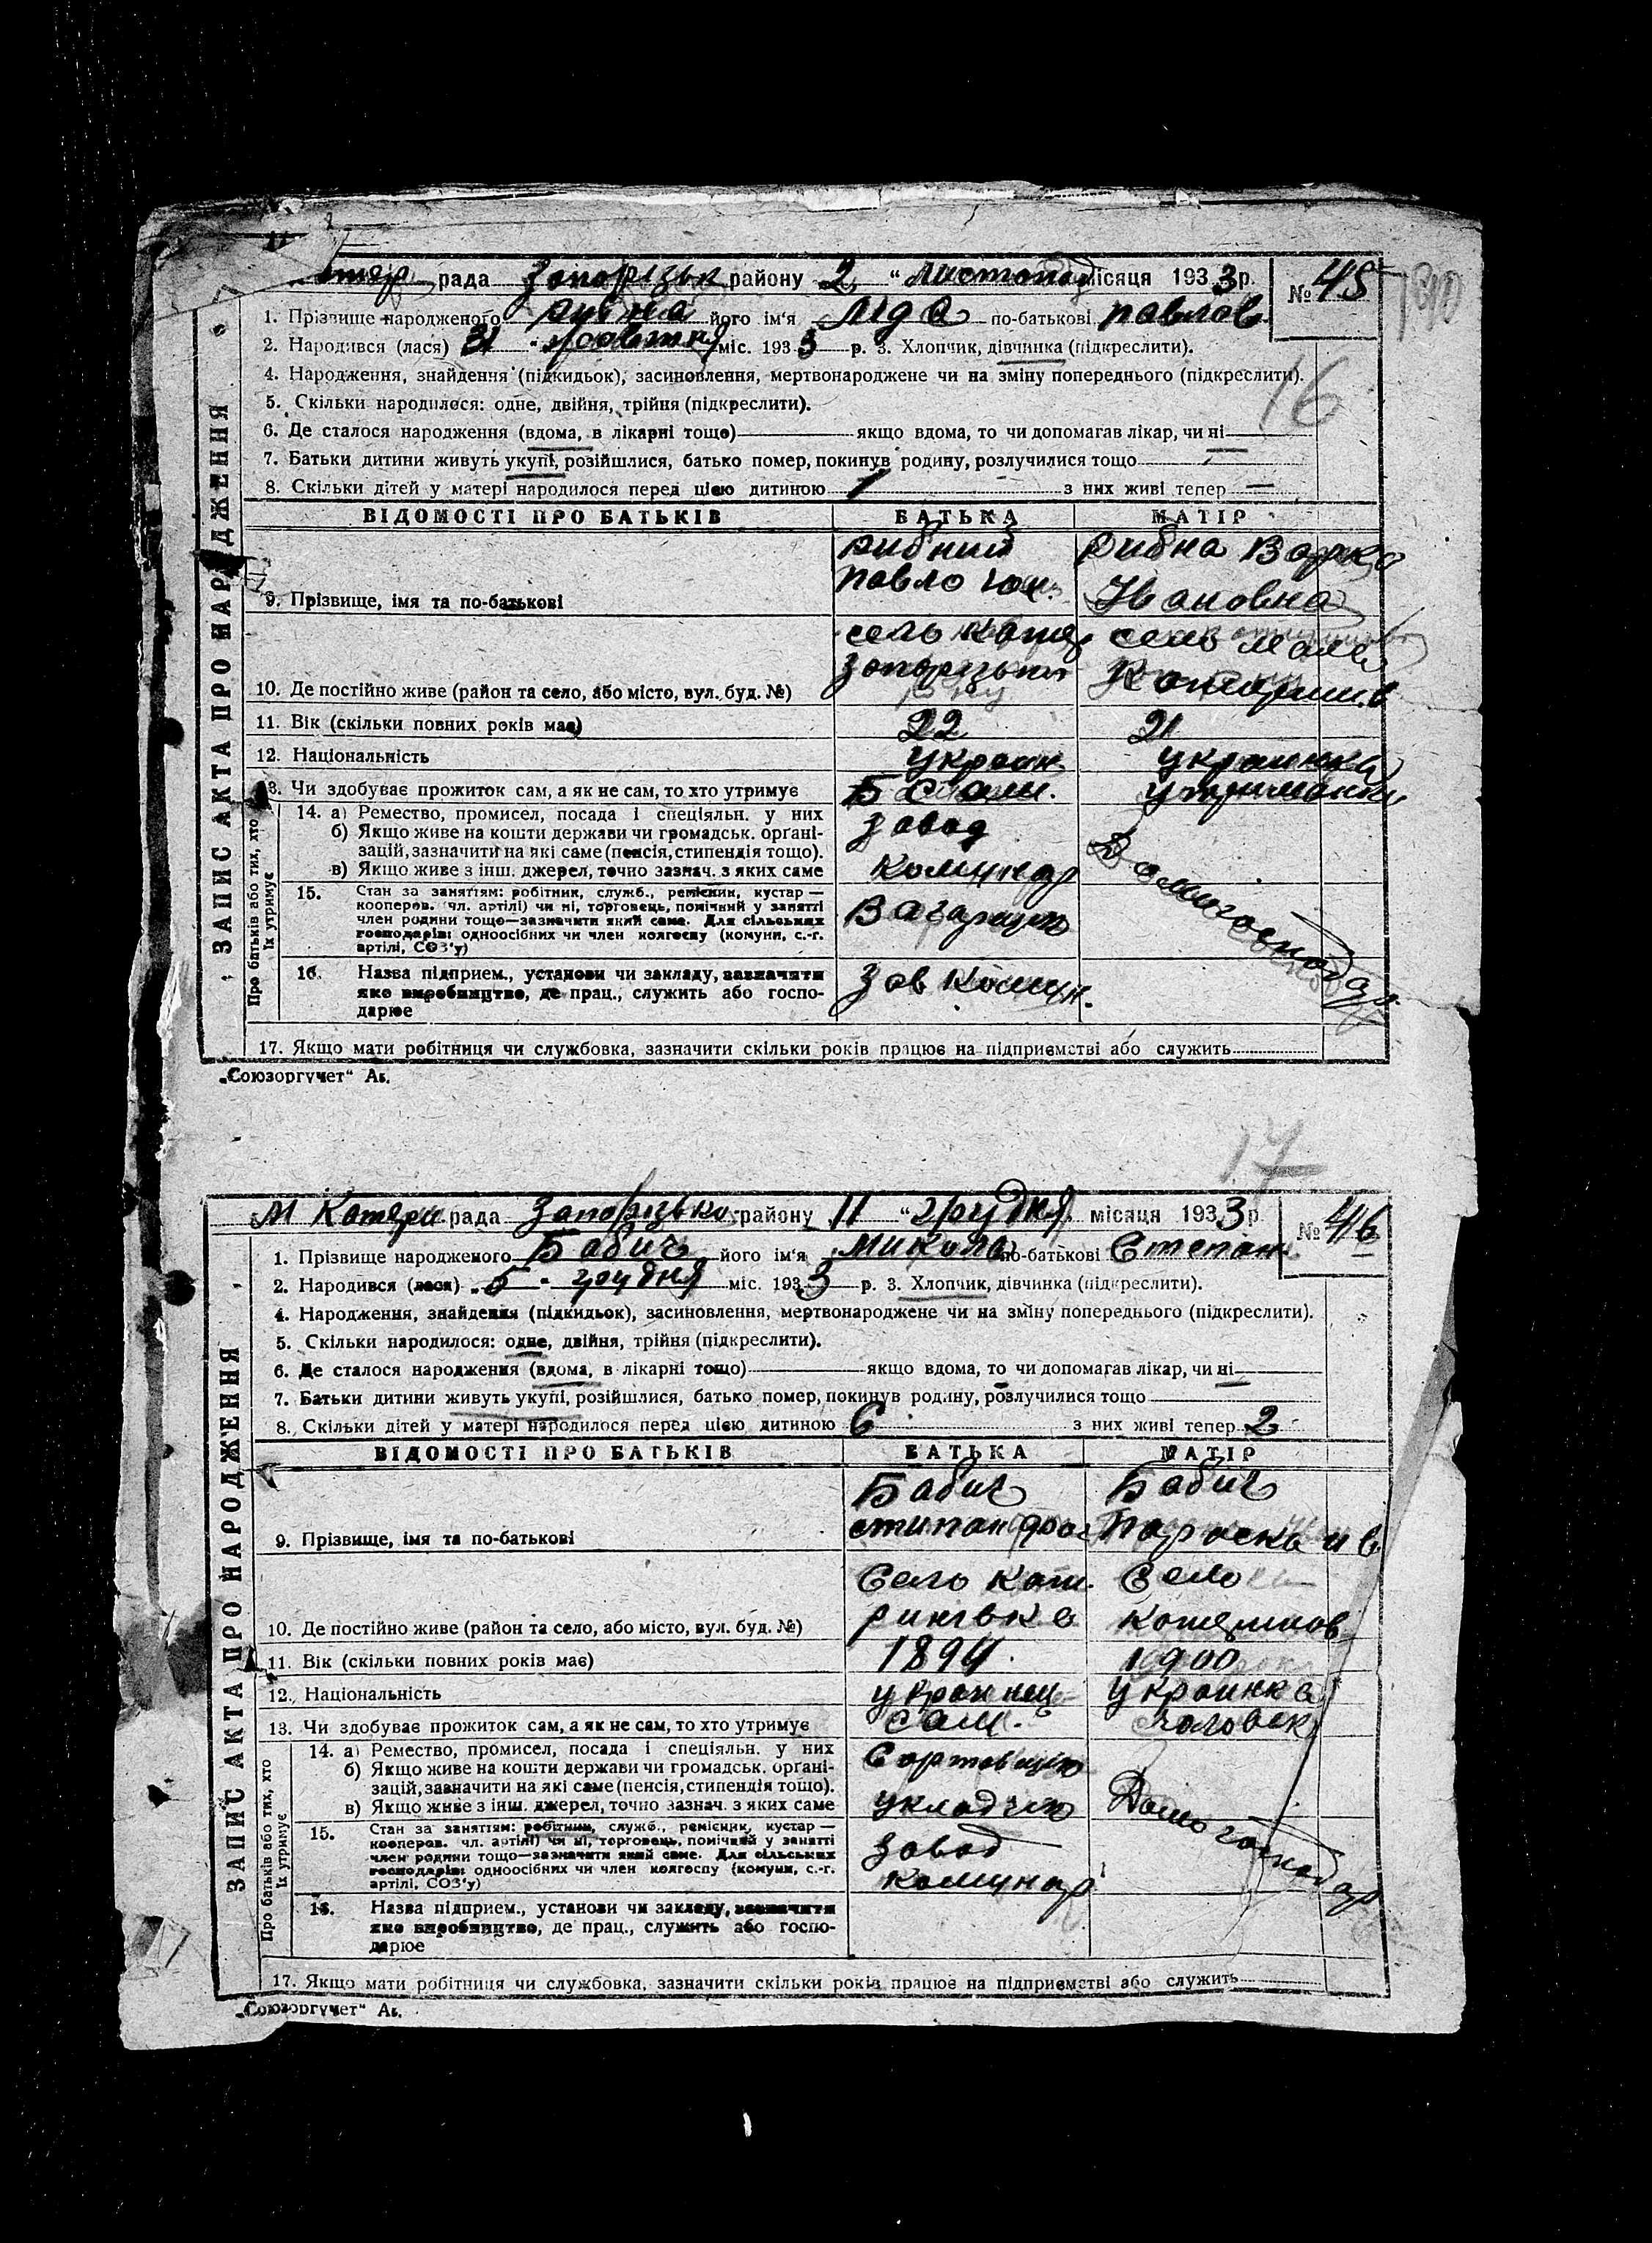 рада Запорізьк району 2 " листопад місяця 1933 р. № 45
1. Прізвище народженого його ім'я Ліда по-батькові Павлов.
2. Народився (лася) 31 " жовтня міс. 1933 р. 3. Хлопчик, дівчинка (підкреслити).
16
4. Народження, знайдення (підкидьок), засиновлення, мертвонароджене чи на зміну попереднього (підкреслити).
5. Скільки народилося: одне, двійня, трійня (підкреслити).
6. Де сталося народження (вдома, в лікарні тощо) якщо вдома, то чи допомагав лікар, чи ні
7. Батьки дитини живуть укупі, розійшлися, батько помер, покинув родину, розлучилися тощо
8. Скільки дітей у матері народилося перед цією дитиною 1 з них живі тепер —
ЗАПИС АКТА ПРО НАРОДЖЕННЯ
ВІДОМОСТІ ПРО БАТЬКІВ БАТЬКА МАТІР
Рибний Рибна Варка
Павло Івановна
9. Прізвище, імя та по-батькові
село село
Запорізьки
10. Де постійно живе (район та село, або місто, вул. буд. №)
11. Вік (скільки повних років має) 22 21
12. Національність украин. украинка
13. Чи здобуває прожиток сам, а як не сам, то хто утримує Б Сам.
Про батьків або тих, хто їх утримує
14. а) Ремество, промисел, посада і спеціяльн. у них завод
б) Якщо живе на кошти держави чи громадськ. орґані-
зацій, зазначити на які саме (пенсія, стипендія тощо).
в) Якщо живе з інш. джерел, точно зазнач. з яких саме комунар
Домогосподар.
15. Стан за заняттям: робітник, служб., ремісник, кустар —
кооперов. чл. артілі) чи ні, торговець, помічний у занятті
член родини тощо—зазначити який саме. Для сільських
господарів: одноосібних чи член колгоспу (комуни, с.-г.
артілі, СОЗ'у)
16. Назва підприем., установи чи закладу, зазначити зав Комун.
яке виробництво, де прац., служить або госпо-
дарює
17. Якщо мати робітниця чи службовка, зазначити скільки років працює на підприємстві або служить
„Союзоргучет“ Аг.
17
М Катери рада Запорізько району 11 " грудня місяця 1933 р. № 46
1. Прізвище народженого Бабич його ім'я Микола по-батькові Степан.
2. Народився (лася) 5 " грудня міс. 1933 р. 3. Хлопчик, дівчинка (підкреслити).
4. Народження, знайдення (підкидьок), засиновлення, мертвонароджене чи на зміну попереднього (підкреслити).
5. Скільки народилося: одне, двійня, трійня (підкреслити).
6. Де сталося народження (вдома, в лікарні тощо) якщо вдома, то чи допомагав лікар, чи ні
7. Батьки дитини живуть укупі, розійшлися, батько помер, покинув родину, розлучилися тощо
8. Скільки дітей у матері народилося перед цією дитиною 6 з них живі тепер 2
ЗАПИС АКТА ПРО НАРОДЖЕННЯ
ВІДОМОСТІ ПРО БАТЬКІВ БАТЬКА МАТІР
Бабич Бабич
стипан Параска ив.
9. Прізвище, імя та по-батькові
Село Кат. Село
10. Де постійно живе (район та село, або місто, вул. буд. №)
11. Вік (скільки повних років має) 1894 1900
12. Національність украинец украинка
13. Чи здобуває прожиток сам, а як не сам, то хто утримує сам. чоловек
Про батьків або тих, хто їх утримує
14. а) Ремество, промисел, посада і спеціяльн. у них
б) Якщо живе на кошти держави чи громадськ. орґані-
зацій, зазначити на які саме (пенсія, стипендія тощо).
в) Якщо живе з інш. джерел, точно зазнач. з яких саме
Домогосподар
15. Стан за заняттям: робітник, служб., ремісник, кустар — завод
кооперов. чл. артілі) чи ні, торговець, помічний у занятті
член родини тощо—зазначити який саме. Для сільських
господарів: одноосібних чи член колгоспу (комуни, с.-г. комунар
артілі, СОЗ'у)
16. Назва підприем., установи чи закладу, зазначити
яке виробництво, де прац., служить або госпо-
дарює
17. Якщо мати робітниця чи службовка, зазначити скільки років працює на підприємстві або служить
„Союзоргучет“ Аг.